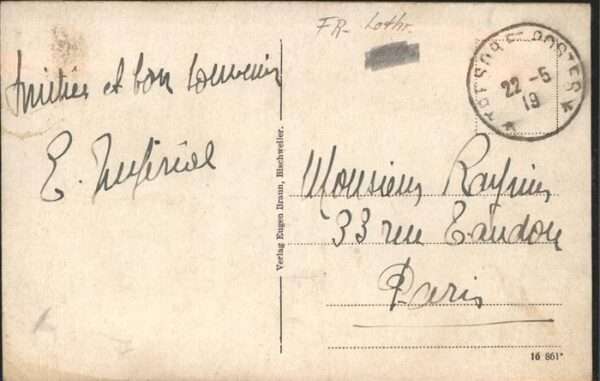 FR- Lothr.
TRÉSOR ET POSTES
22 - 5
19
Amitiés et bon souvenir
E.
Verlag Eugen Braun, Bischweiler.
Monsieur
33 rue
Paris
16 861*